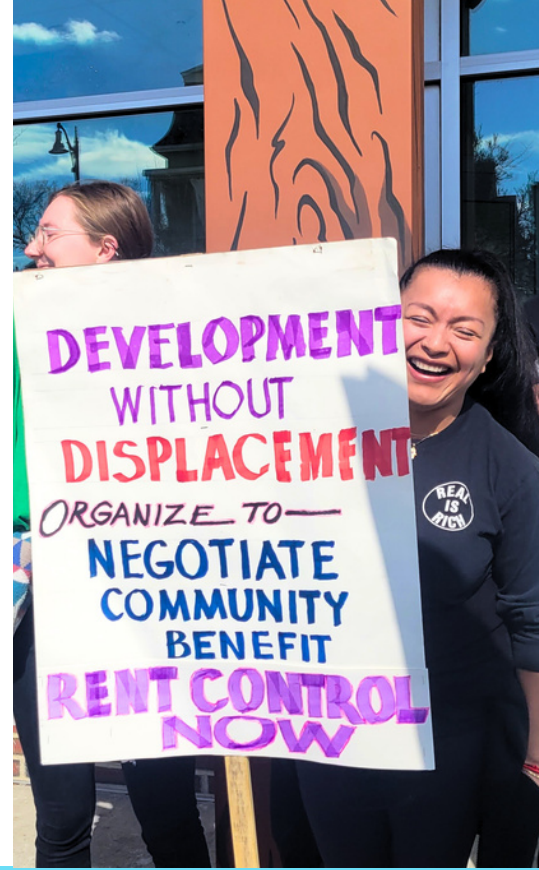 DEVELOPMENT
WITHOUT
DISPLACEMENT
ORGANIZE TO—
NEGOTIATE
COMMUNITY
BENEFIT
RENT CONTROL
NOW
REAL
IS
RICH